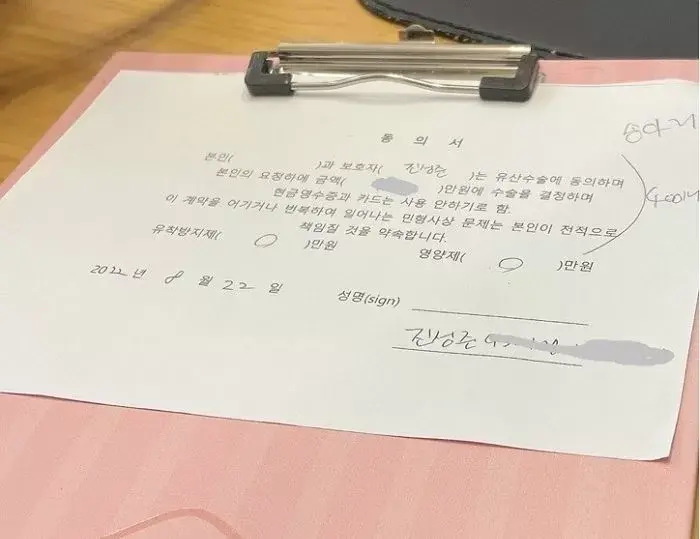 동 의 서
본인( )과 보호자( 진성준 )는 유산수술에 동의하며
본인의 요청하에 금액( )만원에 수술을 결정하며
현금영수증과 카드는 사용 안하기로 함.
이 계약을 어기거나 번복하며 일어나는 민형사상 문제는 본인이 전적으로
책임질 것을 약속합니다.
유착방지제( O )만원 영양제( O )만원
2022 년 8 월 22 일
성명(sign)
진성준